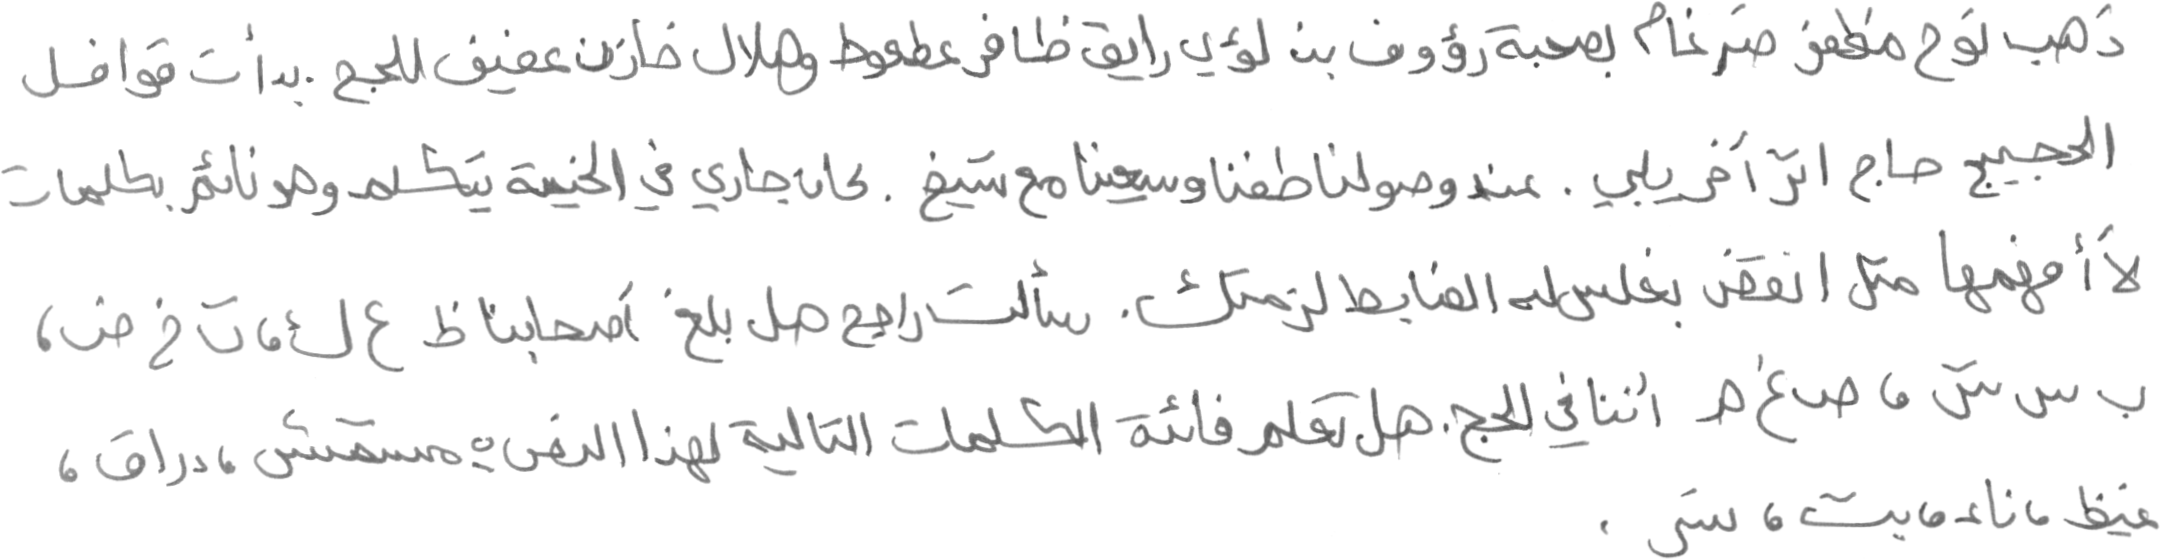 ذهب نوح مظفر ضرغام بصحبة رؤوف بن لؤي رايق ظافر عطعوط وهلال خازن عفيف للحج . بدأت قوافل
الحجيج حاج اثر آخر يلبي . عند وصولنا طفنا وسعينا مع شيخ . كان جاري في الخيمة يتكلم وهو نائم بكلمات
لا أفهمها مثل انقض بغلس له الضابط لزمتك . سألت راجح هل بلغ أصحابنا ظ ع ك ، ت خ ض ،
ب س ش ، ص غ ه اننا في الحج . هل تعلم فائدة الكلمات التالية لهذا النص : مستمش ، دراق ،
غيظ ، ناء ، بيت ، سش .